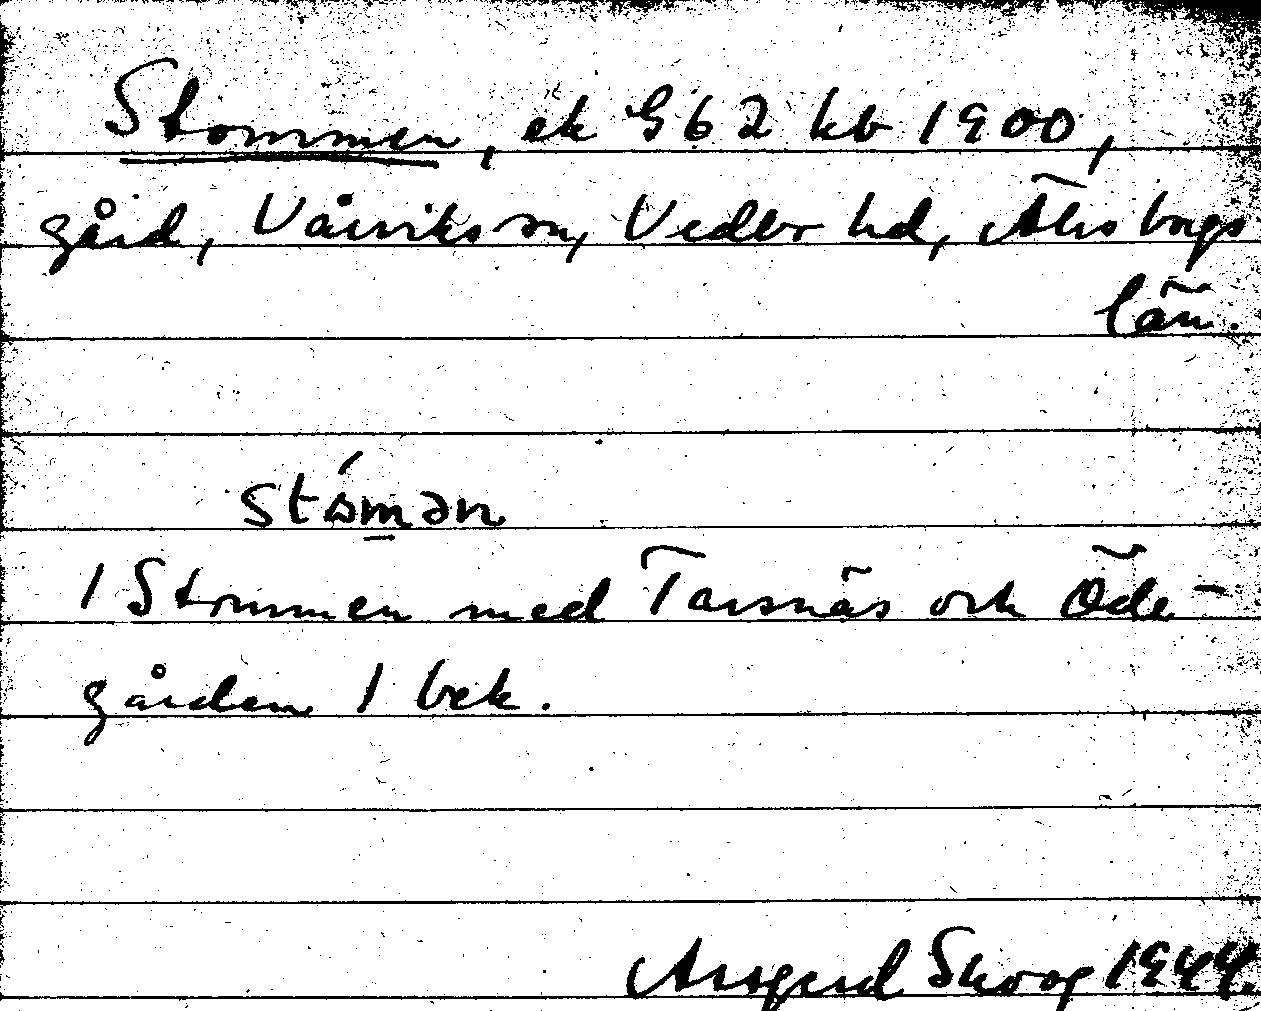 Stommen, ek G62 kb 1900,
gård, Vårviks sn, Vedbo hd, Älvsborgs
län.
stǿmən
1 Stommen med Tarsnäs och Öde-
gården 1 bek.
Asgerd Skoog 1944.